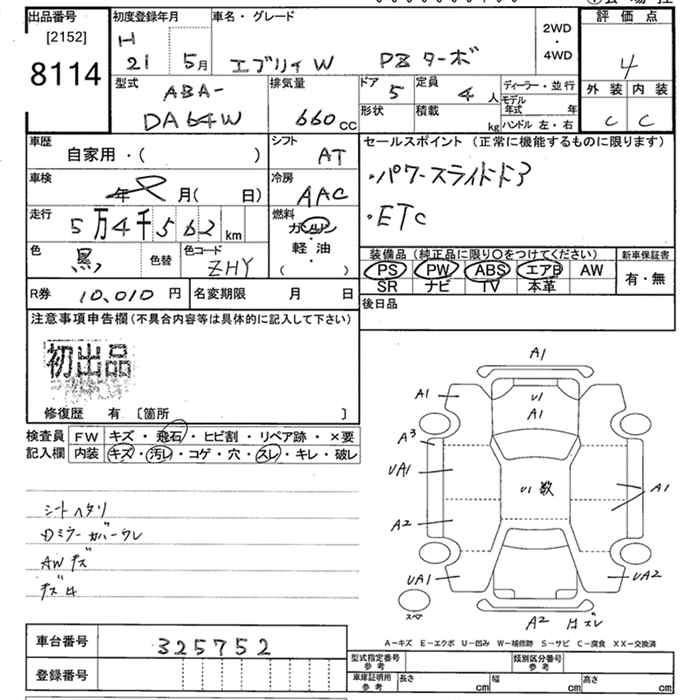 出品番号
[2152]
8114
初度登録年月
H
21 5月
車名・グレード
エブリイW PZターボ
2WD
・
4WD
評価点
4
外装 内装
C C
型式
ABA-
DA64W
排気量
660cc
ドア 5
形状
定員 4人
積載 kg
ディーラー・並行
モデル年式 年
ハンドル 左・右
車歴
自家用・( )
シフト
AT
車検
年 月( 日)
冷房
AAC
走行
5万4千562km
燃料
ガソリン
・
軽油
( )
色
黒
色替
色コード
ZHY
R券 10,010円
名変期限 月 日
セールスポイント (正常に機能するものに限ります)
・パワースライドドア
・ETC
装備品(純正品に限り〇をつけてください)
PS PW ABS エアB AW
SR ナビ TV 本革
新車保証書
有・無
後日品
注意事項申告欄(不具合内容等は具体的に記入して下さい)
初出品
修復歴 有 [箇所 ]
検査員 FW キズ・飛石・ヒビ割・リペア跡・×要
記入欄 内装 キズ・汚レ・コゲ・穴・スレ・キレ・破レ
シートヘタリ
Dミラーカバーワレ
AWキズ
A1
A1
U1
A1
A3
UA1
U1 数
A1
A2
UA1
UA2
スペア
A2
A-キズ E-エクボ U-凹み W-補修跡 S-サビ C-腐食 XX-交換済
車台番号 325752
登録番号
型式指定番号
参考
類別区分番号
参考
車庫証明用
参考
長さ cm 幅 cm 高さ cm